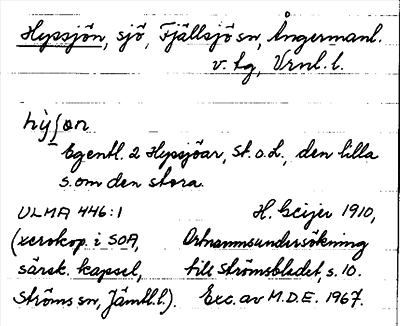 Hyssjön, sjö, Fjällsjö sn, Ångermanl.
v. tg, Vrnl. l.
hỳſon
Egentl. 2 Hyssjöar, St. o. L., den lilla
s. om den stora.
ULMA 446:1 H. Geijer 1910,
(xerokop. i SOA, Ortnamnsundersökning
särsk. kapsel, till Strömsbladet, s. 10.
Ströms sn, Jämtl. l.). Exc. av M.D.E. 1967.